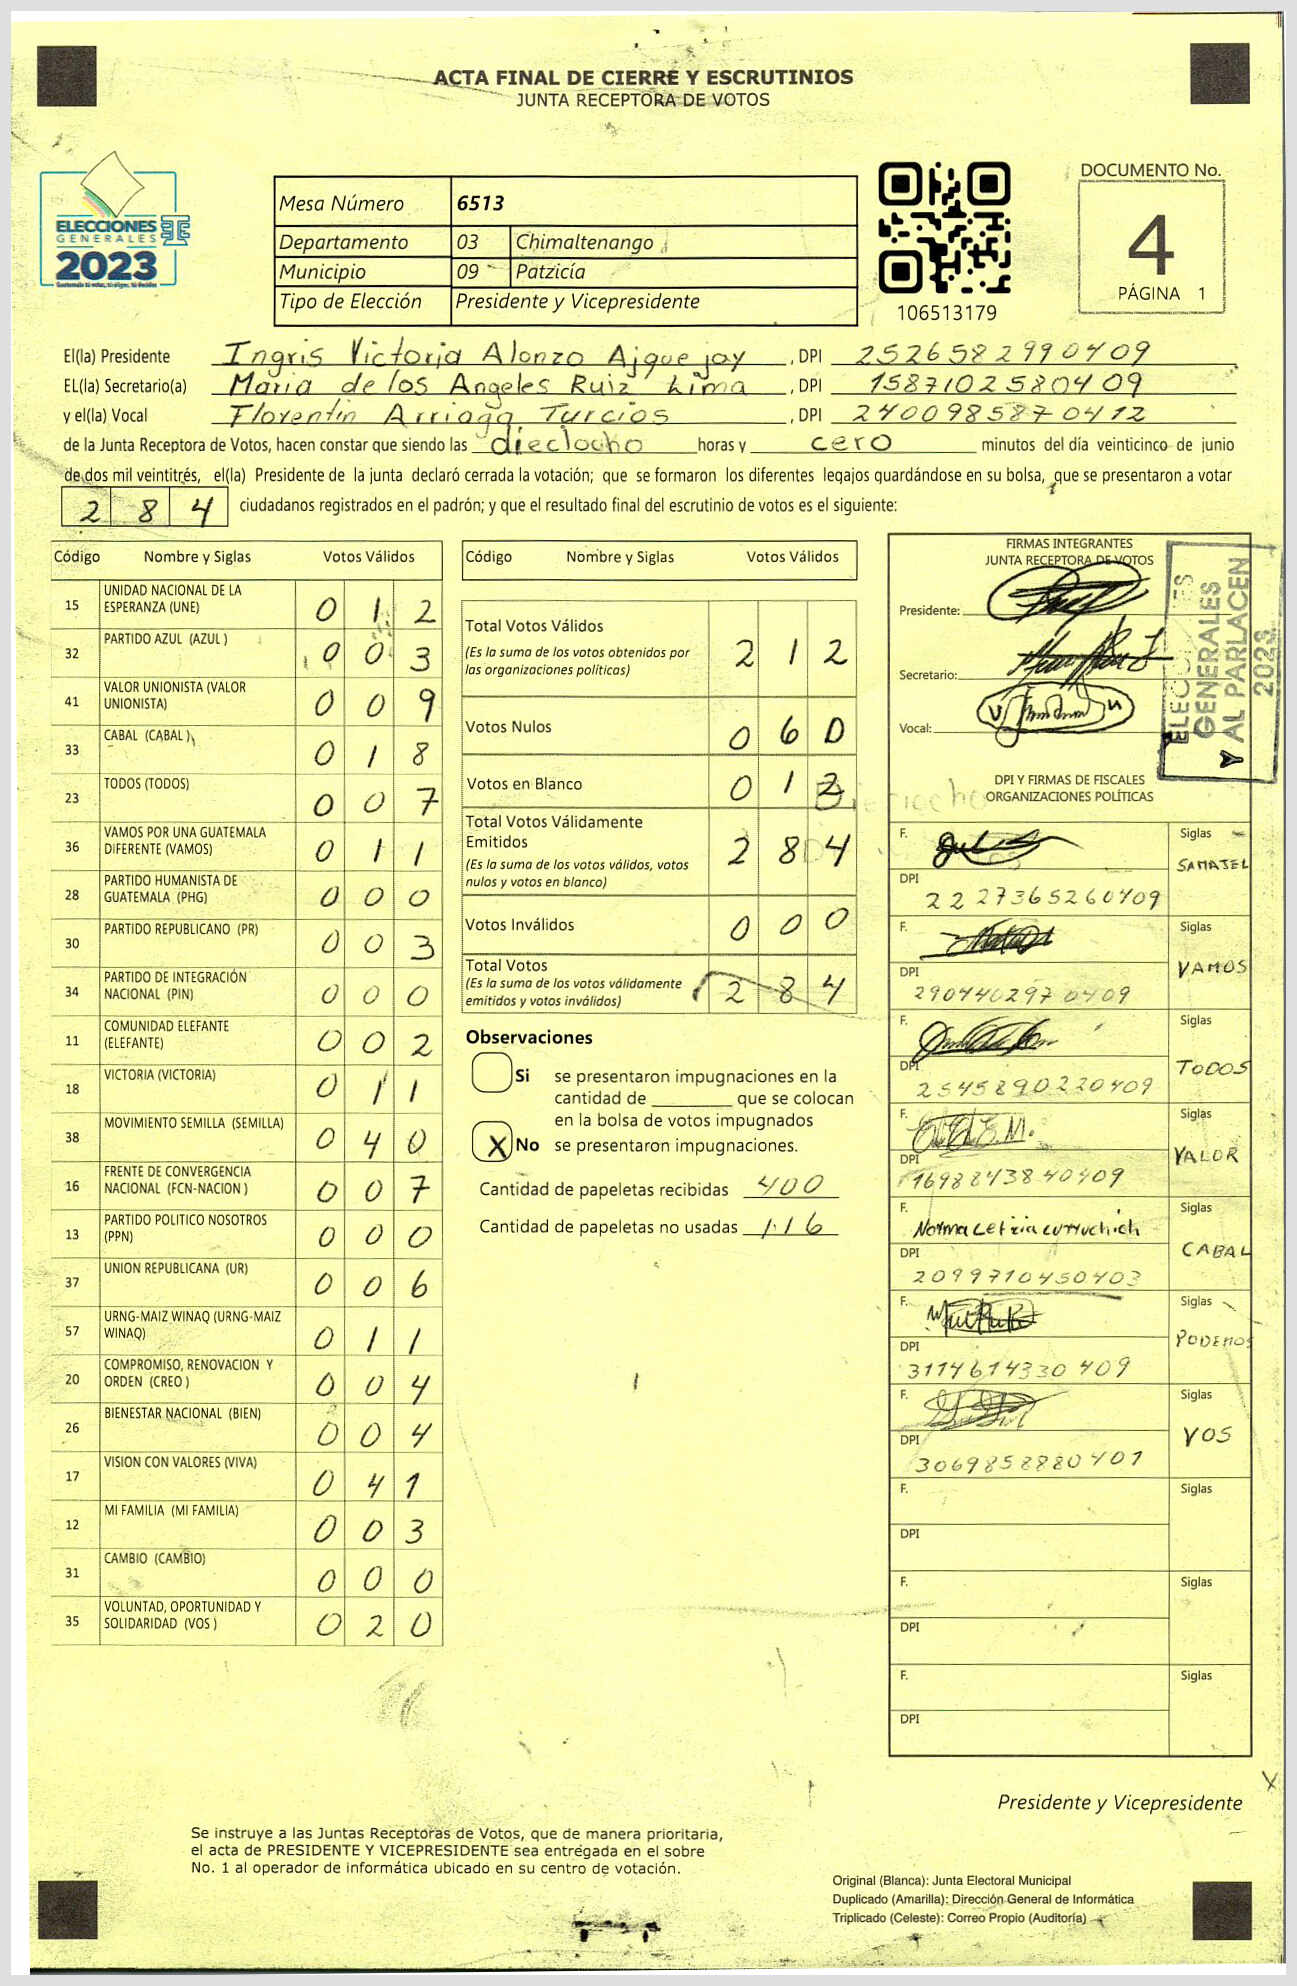 ACTA FINAL DE CIERRE Y ESCRUTINIOS
JUNTA RECEPTORA DE VOTOS
ELECCIONES
GENERALES
2023
Mesa Número 6513
Departamento 03 Chimaltenango
Municipio 09 Patzicía
Tipo de Elección Presidente y Vicepresidente
106513179
DOCUMENTO No.
4
PÁGINA 1
El(la) Presidente Ingris Victoria Alonzo Ajquejay , DPI 2526582990409
EL(la) Secretario(a) Maria de los Angeles Ruiz Lima , DPI 1587102580409
y el(la) Vocal Florentin Arriaga Turcios , DPI 2400985870412
de la Junta Receptora de Votos, hacen constar que siendo las dieciocho horas y cero minutos del día veinticinco de junio
de dos mil veintitrés, el(la) Presidente de la junta declaró cerrada la votación; que se formaron los diferentes legajos guardándose en su bolsa, que se presentaron a votar
2 8 4 ciudadanos registrados en el padrón; y que el resultado final del escrutinio de votos es el siguiente:
Código Nombre y Siglas Votos Válidos
15 UNIDAD NACIONAL DE LA
ESPERANZA (UNE) 0 1 2
32 PARTIDO AZUL (AZUL ) 0 0 3
41 VALOR UNIONISTA (VALOR
UNIONISTA) 0 0 9
33 CABAL (CABAL ) 0 1 8
23 TODOS (TODOS) 0 0 7
36 VAMOS POR UNA GUATEMALA
DIFERENTE (VAMOS) 0 1 1
28 PARTIDO HUMANISTA DE
GUATEMALA (PHG) 0 0 0
30 PARTIDO REPUBLICANO (PR) 0 0 3
34 PARTIDO DE INTEGRACIÓN
NACIONAL (PIN) 0 0 0
11 COMUNIDAD ELEFANTE
(ELEFANTE) 0 0 2
18 VICTORIA (VICTORIA) 0 1 1
38 MOVIMIENTO SEMILLA (SEMILLA) 0 4 0
16 FRENTE DE CONVERGENCIA
NACIONAL (FCN-NACION ) 0 0 7
13 PARTIDO POLITICO NOSOTROS
(PPN) 0 0 0
37 UNION REPUBLICANA (UR) 0 0 6
57 URNG-MAIZ WINAQ (URNG-MAIZ
WINAQ) 0 1 1
20 COMPROMISO, RENOVACION Y
ORDEN (CREO ) 0 0 4
26 BIENESTAR NACIONAL (BIEN) 0 0 4
17 VISION CON VALORES (VIVA) 0 4 1
12 MI FAMILIA (MI FAMILIA) 0 0 3
31 CAMBIO (CAMBIO) 0 0 0
35 VOLUNTAD, OPORTUNIDAD Y
SOLIDARIDAD (VOS ) 0 2 0
Código Nombre y Siglas Votos Válidos
Total Votos Válidos
(Es la suma de los votos obtenidos por
las organizaciones políticas) 2 1 2
Votos Nulos 0 6 0
Votos en Blanco 0 1 2
Total Votos Válidamente
Emitidos
(Es la suma de los votos válidos, votos
nulos y votos en blanco) 2 8 4
Votos Inválidos 0 0 0
Total Votos
(Es la suma de los votos válidamente
emitidos y votos inválidos) 2 8 4
Observaciones
Si se presentaron impugnaciones en la
cantidad de ________ que se colocan
en la bolsa de votos impugnados
X No se presentaron impugnaciones.
Cantidad de papeletas recibidas 400
Cantidad de papeletas no usadas 116
FIRMAS INTEGRANTES
JUNTA RECEPTORA DE VOTOS
Presidente:
Secretario:
Vocal:
GENERALES
Y AL PARLACEN
2023
DPI Y FIRMAS DE FISCALES
ORGANIZACIONES POLÍTICAS
F. Siglas
DPI 2227365260409
F. Siglas VAMOS
DPI 2904402970409
F. Siglas TODOS
DPI 2545890220409
F. Siglas VALOR
DPI 1698843840409
F. Norma Leticia Curruchich Siglas CABAL
DPI 2099710450403
F. Siglas PODEMOS
DPI 3114614330409
F. Siglas VOS
DPI 3069858880401
F. Siglas
DPI
F. Siglas
DPI
F. Siglas
DPI
Presidente y Vicepresidente
Se instruye a las Juntas Receptoras de Votos, que de manera prioritaria,
el acta de PRESIDENTE Y VICEPRESIDENTE sea entregada en el sobre
No. 1 al operador de informática ubicado en su centro de votación.
Original (Blanca): Junta Electoral Municipal
Duplicado (Amarilla): Dirección General de Informática
Triplicado (Celeste): Correo Propio (Auditoría)